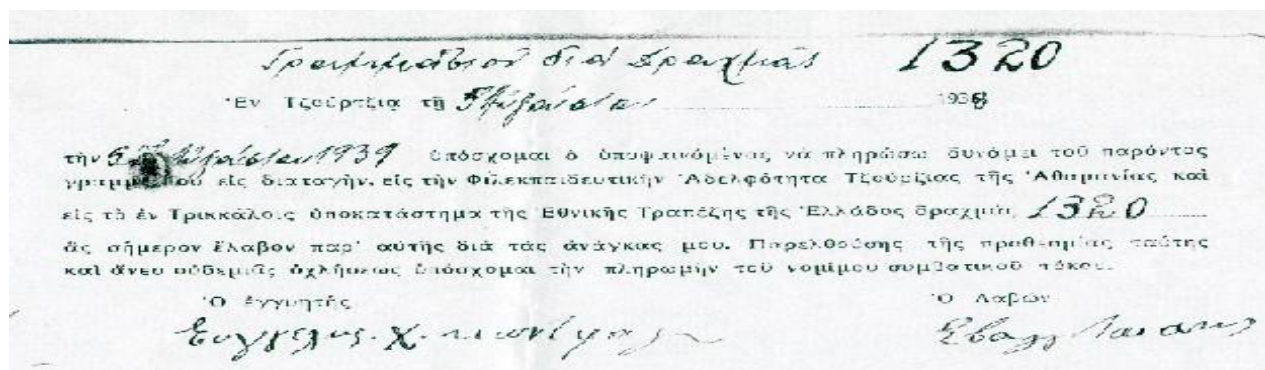 Γραμμάτιον διὰ Δραχμὰς 1320
Ἐν Τζούρτζια τῇ 5 Αὐγούστου 1938
τὴν 5 Αὐγούστου 1939 ὑπόσχομαι ὁ ὑποφαινόμενος νὰ πληρώσω δυνάμει τοῦ παρόντος
γραμματίου εἰς διαταγήν, εἰς τὴν Φιλεκπαιδευτικὴν Ἀδελφότητα Τζούρζιας τῆς Ἀθαμανίας καὶ
εἰς τὸ ἐν Τρικκάλοις ὑποκατάστημα τῆς Ἐθνικῆς Τραπέζης τῆς Ἑλλάδος δραχμὰς 1320
ἃς σήμερον ἔλαβον παρ' αὐτῆς διὰ τὰς ἀνάγκας μου. Παρελθούσης τῆς προθεσμίας ταύτης
καὶ ἄνευ οὐδεμιᾶς ὀχλήσεως ὑπόσχομαι τὴν πληρωμὴν τοῦ νομίμου συμβατικοῦ τόκου.
Ὁ ἐγγυητής Ὁ Λαβών
Ευάγγελος Χ.